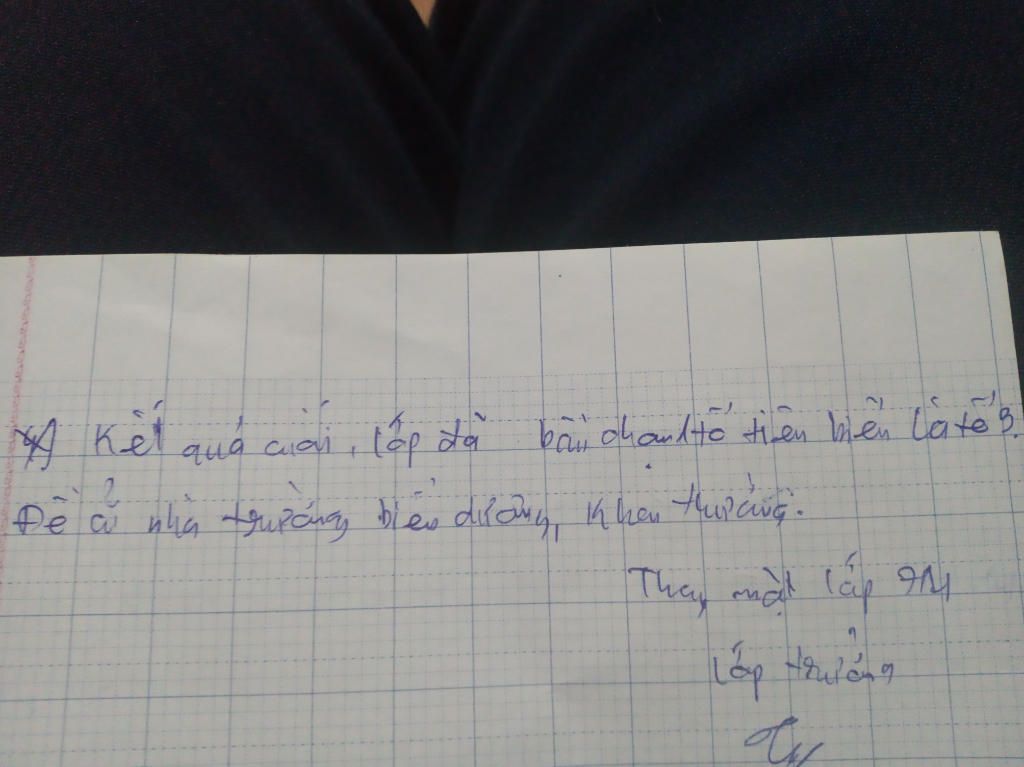 Kết quả cuối, lớp đã bầu chọn tổ tiên biểu là tổ 3.
Đề ở nhà trường biểu dương, khen thưởng.
Thay mặt lớp
lớp trưởng